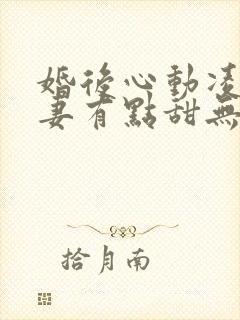 婚後心動凌
妻有點甜無
拾月南